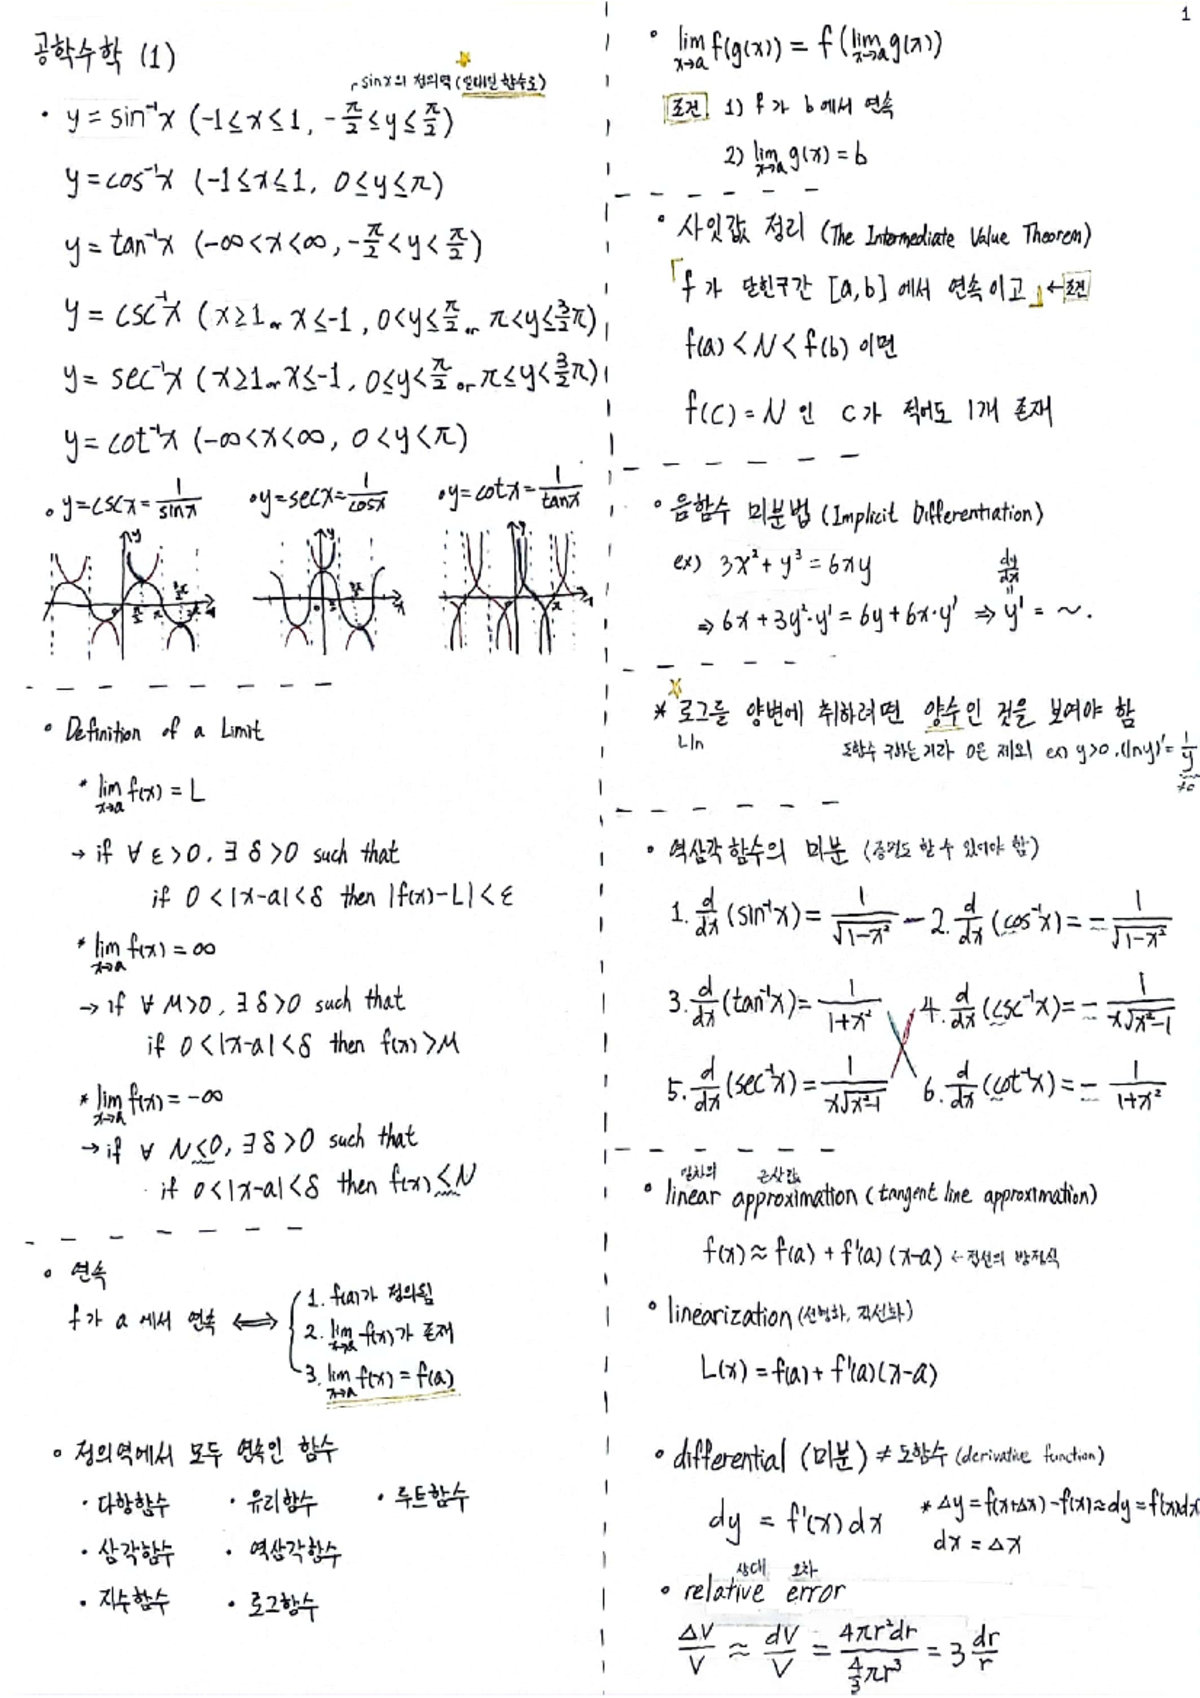 1
공학수학 (1)
sinx의 정의역 (일대일 함수로)
• y = sin⁻¹x (-1≤x≤1, -π/2≤y≤π/2)
y = cos⁻¹x (-1≤x≤1, 0≤y≤π)
y = tan⁻¹x (-∞<x<∞, -π/2<y<π/2)
y = csc⁻¹x (x≥1 or x≤-1, 0<y≤π/2 or π<y≤3/2π)
y = sec⁻¹x (x≥1 or x≤-1, 0≤y<π/2 or π≤y<3/2π)
y = cot⁻¹x (-∞<x<∞, 0<y<π)
∘ y=cscx=1/sinx ∘ y=secx=1/cosx ∘ y=cotx=1/tanx
∘ Definition of a Limit
* lim x→a f(x) = L
→ if ∀ ε>0, ∃ δ>0 such that
if 0<|x-a|<δ then |f(x)-L|<ε
* lim x→a f(x) = ∞
→ if ∀ M>0, ∃ δ>0 such that
if 0<|x-a|<δ then f(x)>M
* lim x→a f(x) = -∞
→ if ∀ N≤0, ∃ δ>0 such that
if 0<|x-a|<δ then f(x)≤N
∘ 연속
f가 a 에서 연속 ⟺
1. f(a)가 정의됨
2. lim x→a f(x)가 존재
3. lim x→a f(x) = f(a)
∘ 정의역에서 모두 연속인 함수
· 다항함수 · 유리함수 · 루트함수
· 삼각함수 · 역삼각함수
· 지수함수 · 로그함수
∘ lim x→a f(g(x)) = f(lim x→a g(x))
조건 1) f 가 b에서 연속
2) lim x→a g(x) = b
∘ 사잇값 정리 (The Intermediate Value Theorem)
「f 가 닫힌구간 [a,b] 에서 연속이고」 ← 조건
f(a) < N < f(b) 이면
f(c) = N 인 c가 적어도 1개 존재
∘ 음함수 미분법 (Implicit Differentiation)
ex) 3x² + y³ = 6xy
dy/dx
=
⇒ 6x + 3y²·y' = 6y + 6x·y' ⇒ y' = ~.
* 로그를 양변에 취하려면 양수인 것을 보여야 함
Ln
도함수 구하는거라 0은 제외 ex) y>0, (lny)' = 1/y
≠0
∘ 역삼각함수의 미분 (증명도 할 수 있어야 함)
1. d/dx (sin⁻¹x) = 1/√(1-x²) - 2. d/dx (cos⁻¹x) = - 1/√(1-x²)
3. d/dx (tan⁻¹x) = 1/(1+x²) 4. d/dx (csc⁻¹x) = - 1/(x√(x²-1))
5. d/dx (sec⁻¹x) = 1/(x√(x²-1)) 6. d/dx (cot⁻¹x) = - 1/(1+x²)
일차의 근삿값
∘ linear approximation (tangent line approximation)
f(x) ≈ f(a) + f'(a)(x-a) ← 접선의 방정식
∘ linearization (선형화, 직선화)
L(x) = f(a) + f'(a)(x-a)
∘ differential (미분) ≠ 도함수 (derivative function)
dy = f'(x)dx
* Δy = f(x+Δx) - f(x) ≈ dy = f'(x)dx
dx = Δx
상대 오차
∘ relative error
ΔV/V ≈ dV/V = 4πr²dr / (4/3 πr³) = 3 dr/r